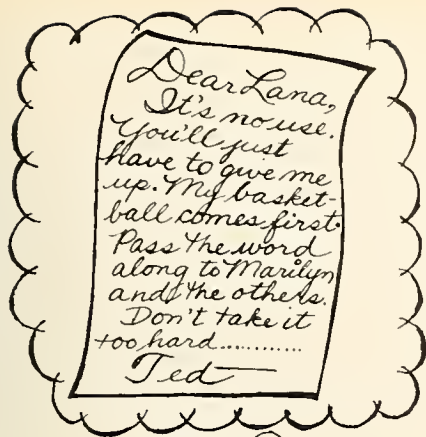 Dear Lana,
It's no use.
You'll just
have to give me
up. My basket-
ball comes first.
Pass the word
along to Marilyn
and the others.
Don't take it
too hard............
Ted